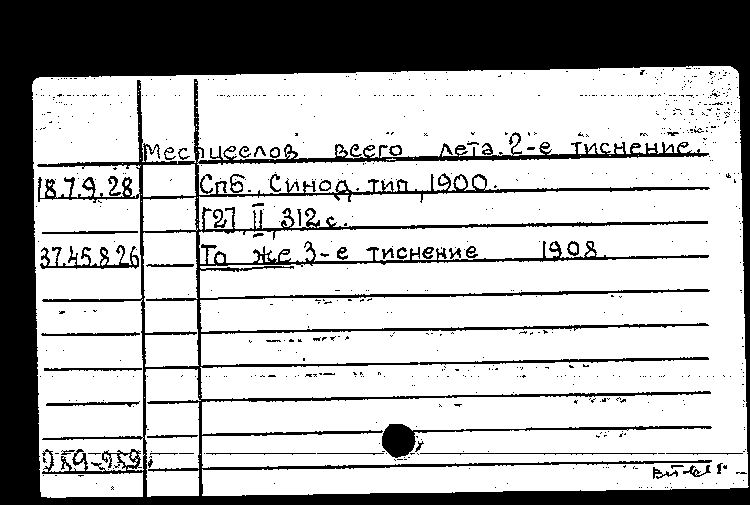 Месяцеслов всего лета. 2-е тиснение.
18.7.9.28. Спб., Синод. тип., 1900.
[2], II, 312 с.
37.45.8.26 То же. 3-е тиснение 1908.